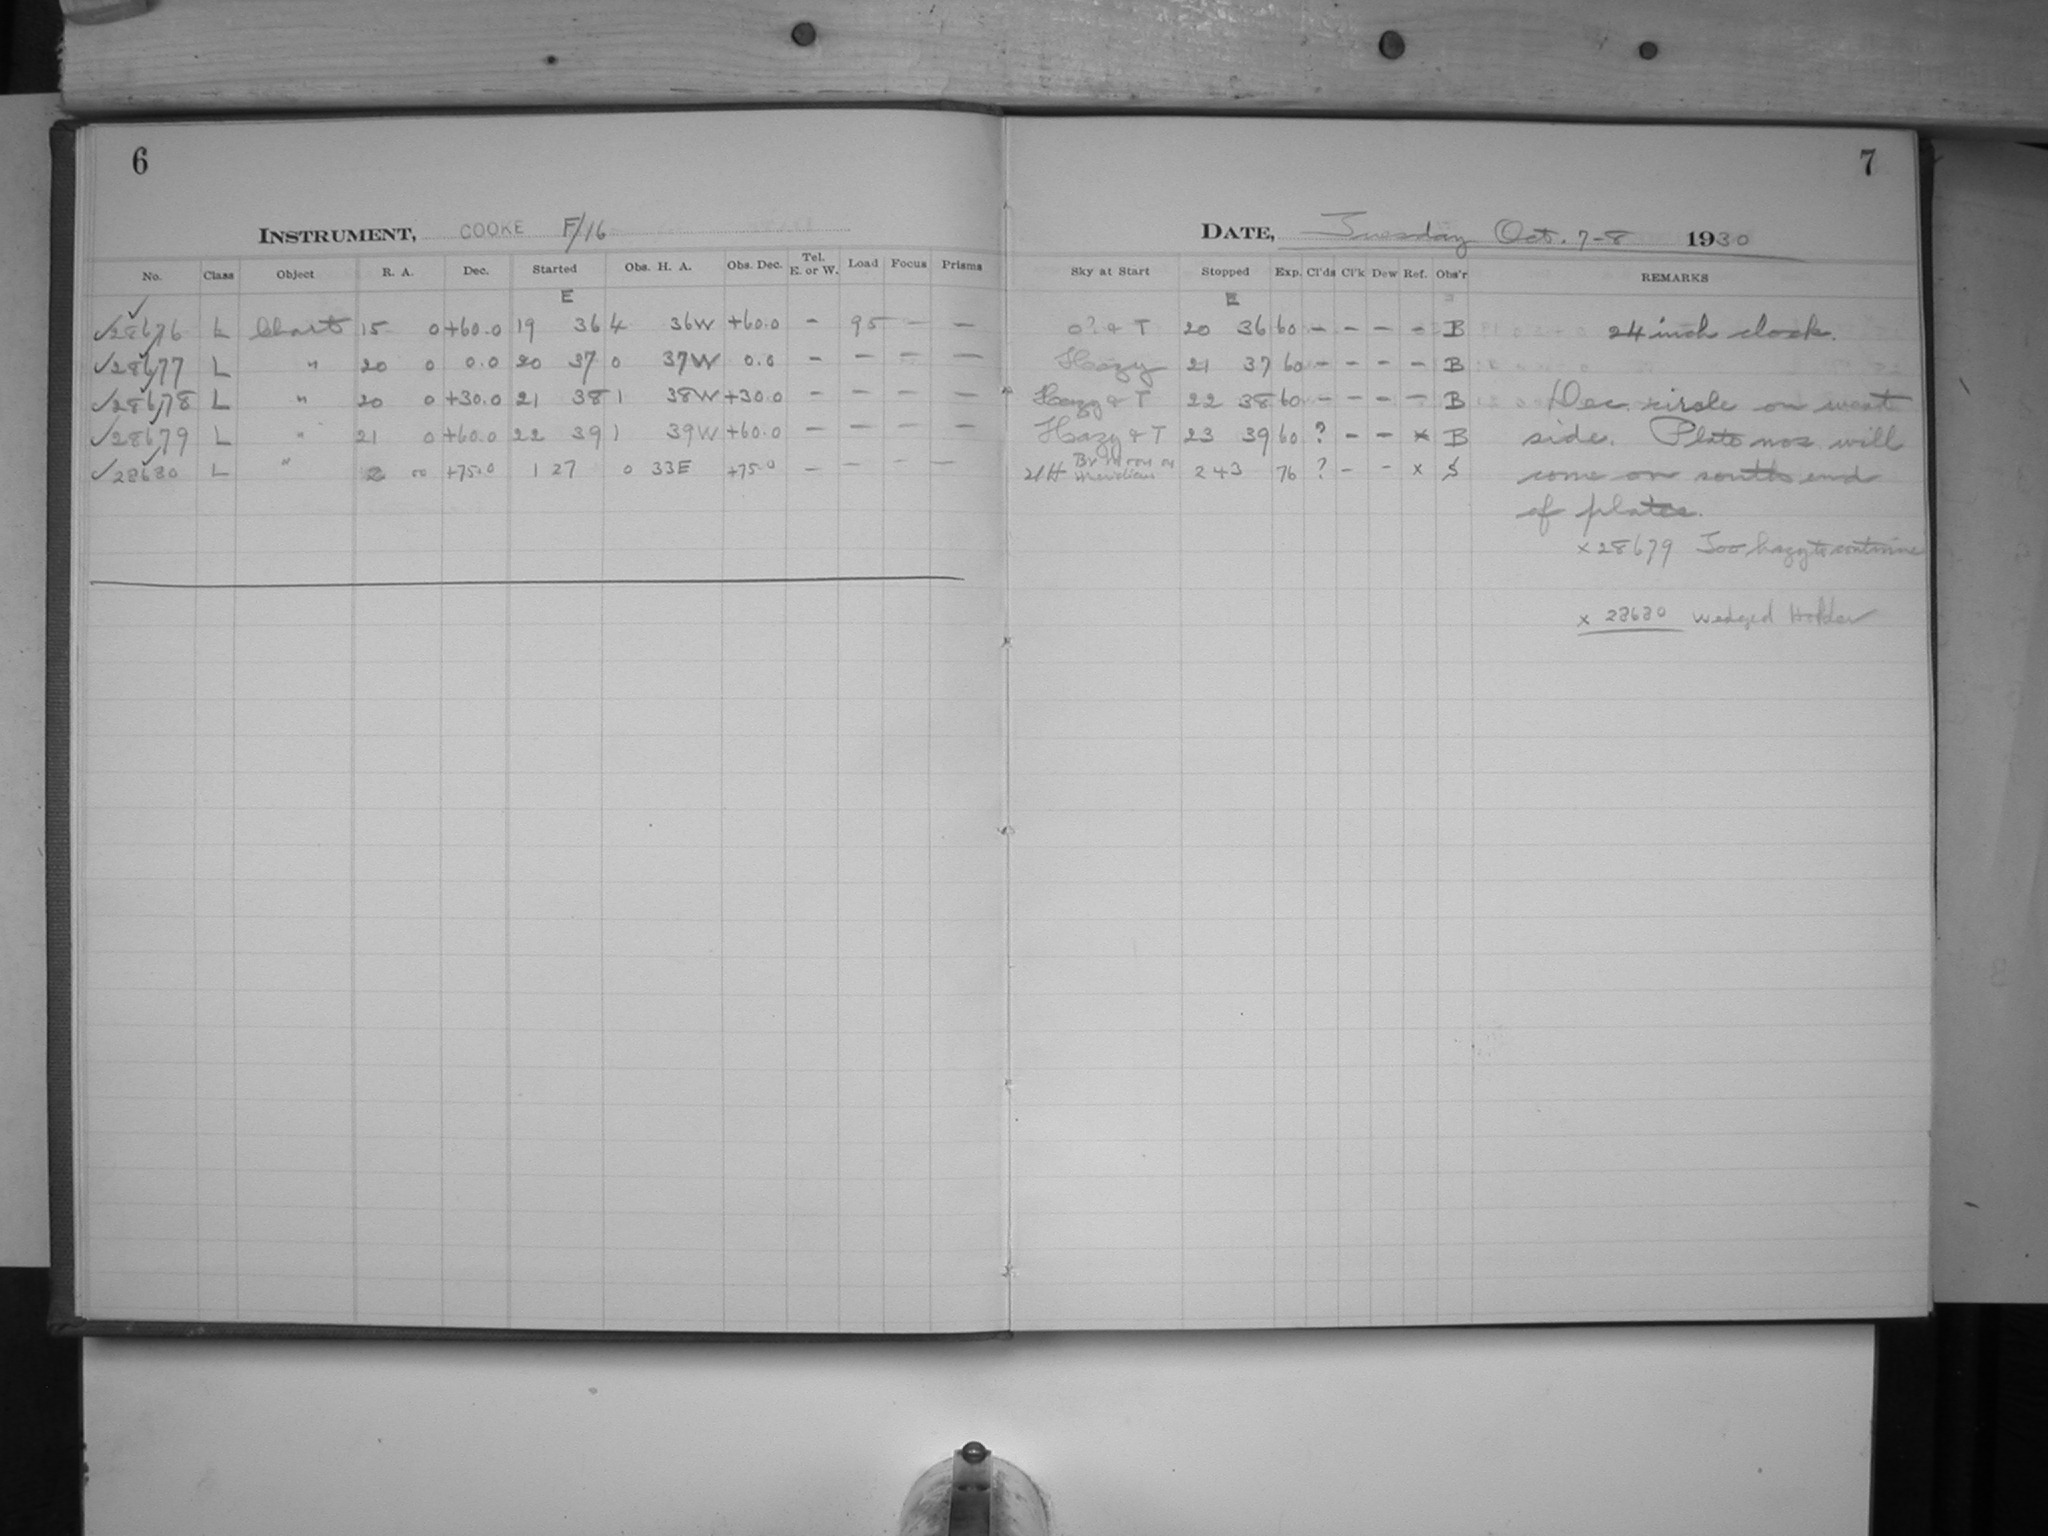 6
INSTRUMENT, COOKE F/16
No. Class Object R. A. Dec. Started Obs. H. A. Obs. Dec. Tel. E. or W. Load Focus Prisms
E
✓28676 L Chart 15 0 +60.0 19 36 4 36W +60.0 - 95 - -
✓28677 L " 20 0 0.0 20 37 0 37W 0.0 - - - -
✓28678 L " 20 0 +30.0 21 38 1 38W +30.0 - - - -
✓28679 L " 21 0 +60.0 22 39 1 39W +60.0 - - - -
✓28680 L " 2 00 +75.0 1 27 0 33E +75.0 - - - -
7
DATE, Tuesday Oct. 7-8 1930
Sky at Start Stopped Exp. Cl'ds Cl'k Dew Ref. Obs'r REMARKS
E
0? & T 20 36 60 - - - - B 24 inch clock.
Hazy 21 37 60 - - - - B
Hazy & T 22 38 60 - - - - B Dec. circle on west
Hazy & T 23 39 60 ? - - x B side. Plate nos. will
Br moon on meridian 2 43 76 ? - - x S come on south end
of plates.
x 28679 Too hazy to continue
x 28680 Wedged Holder